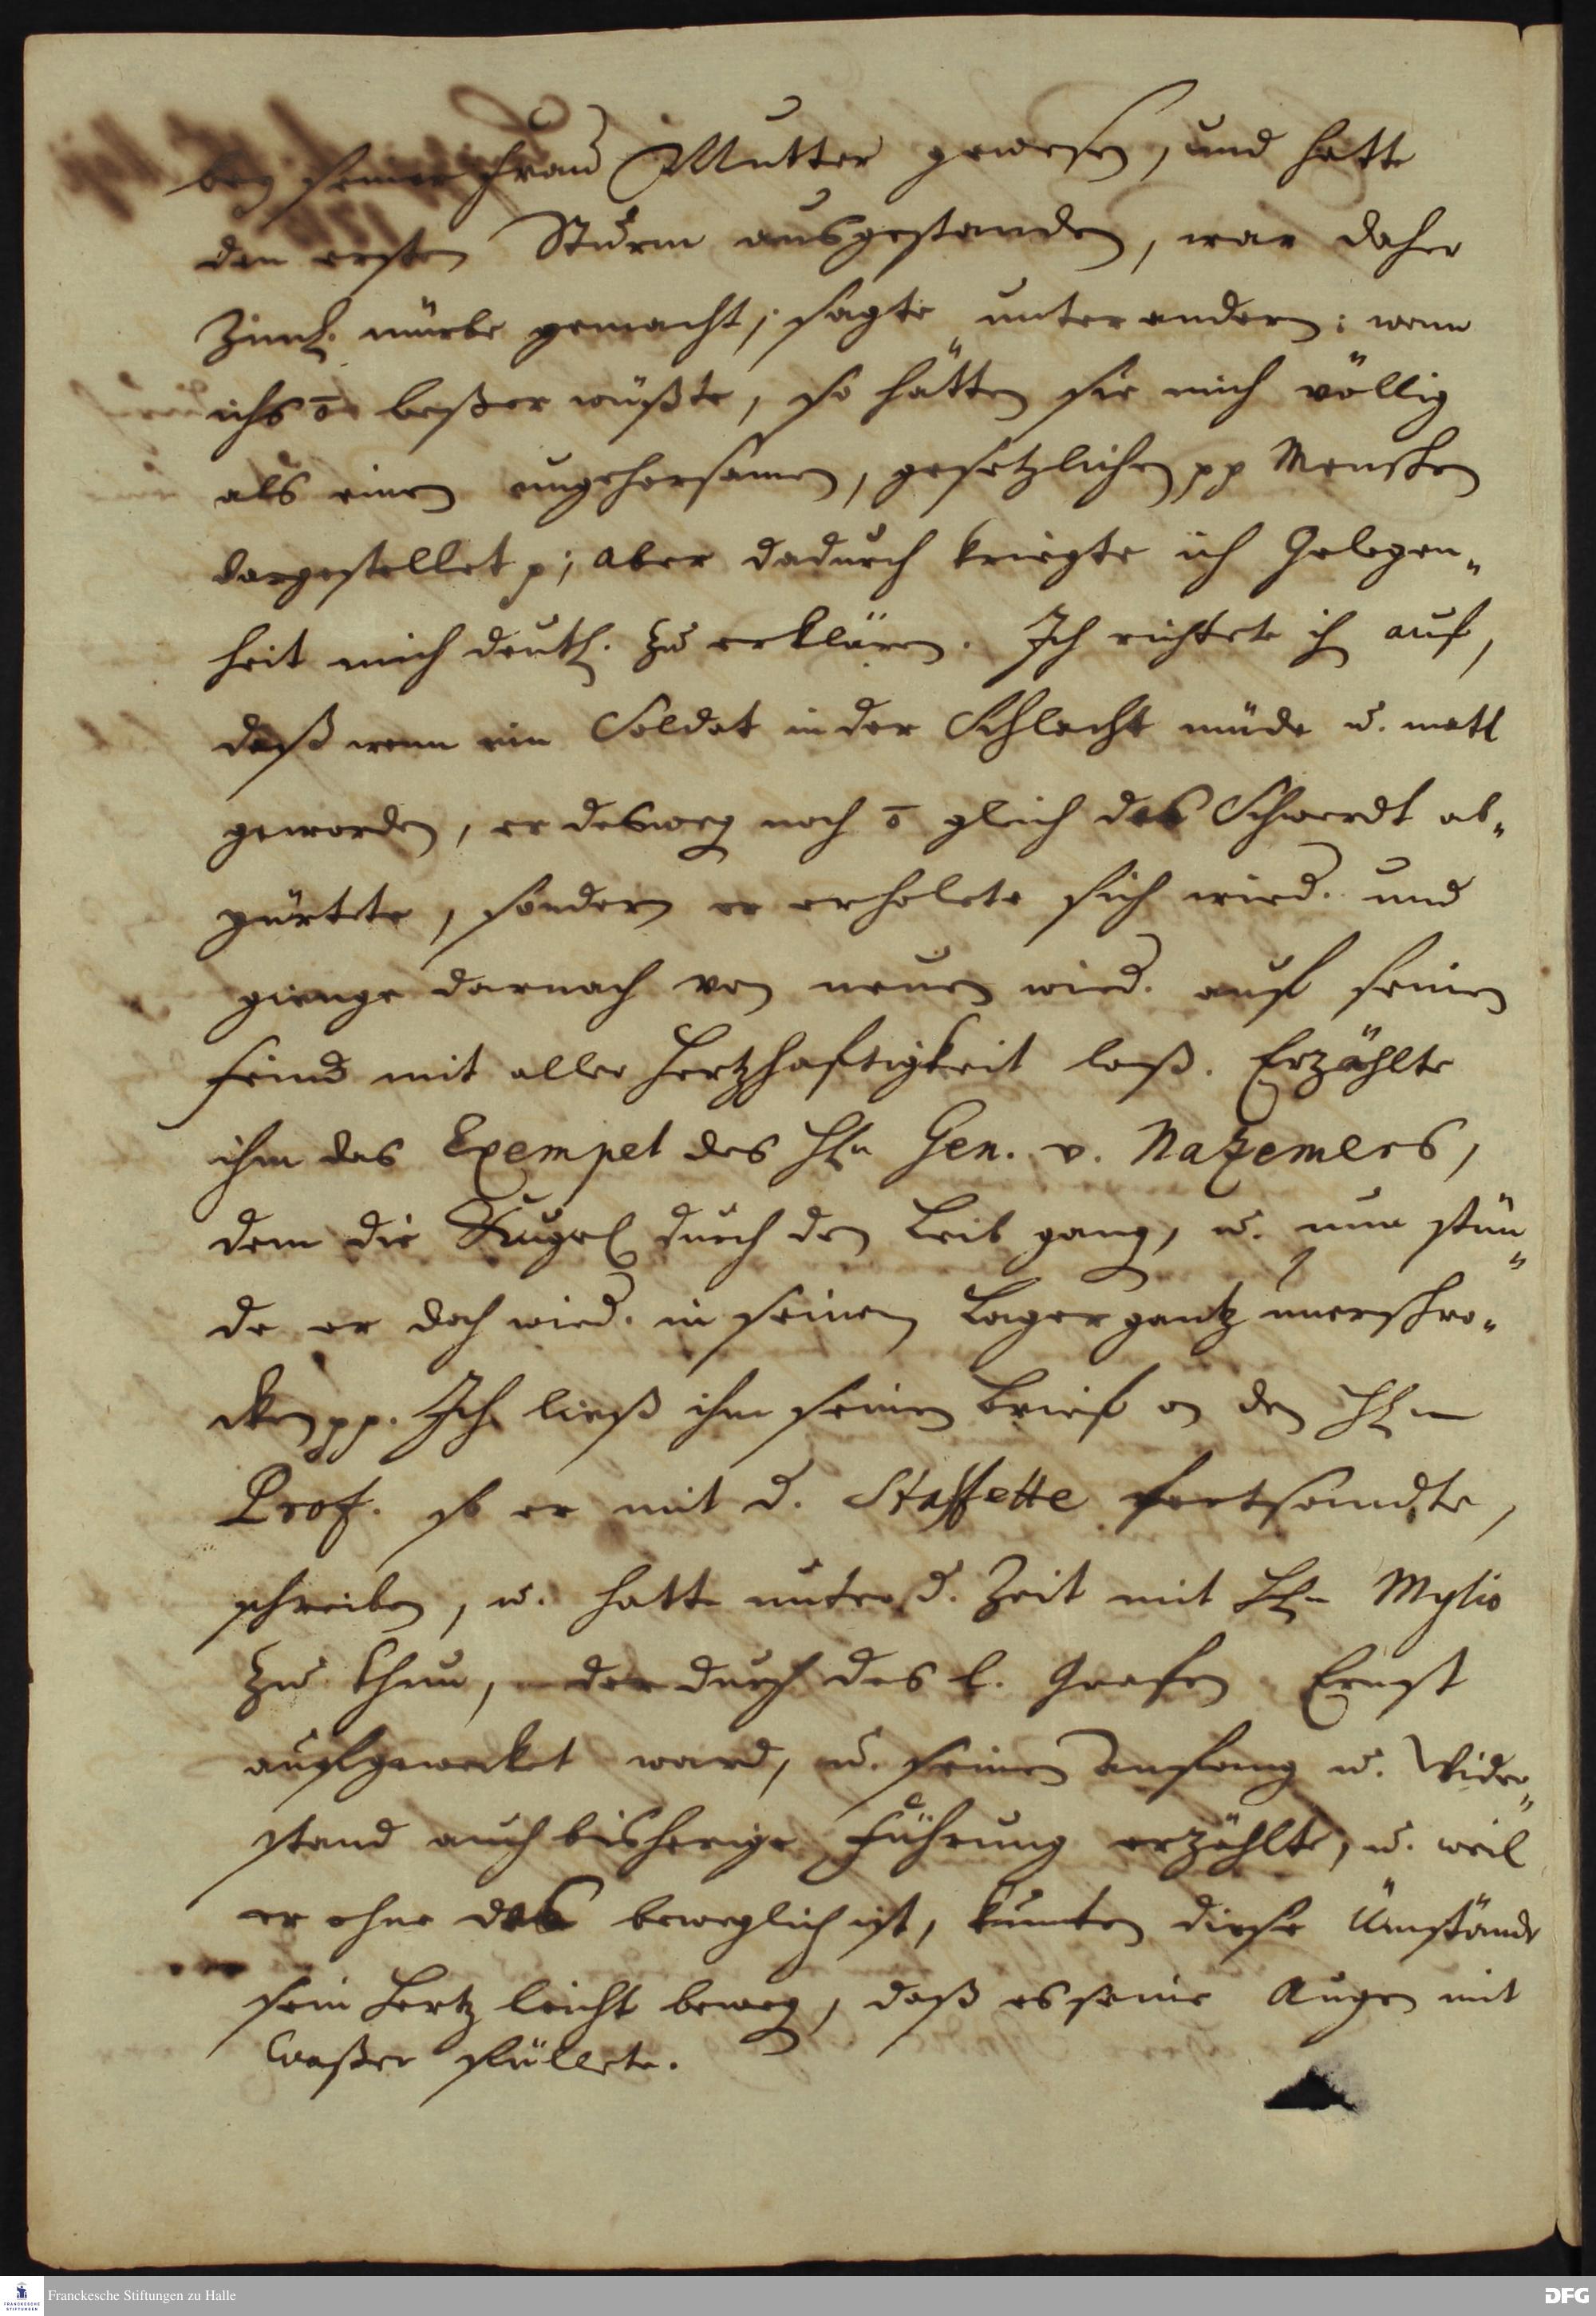 bey seiner Frau Mutter gewesen, und hatte
den ersten Sturm ausgestanden, war daher
Zimlh. mürbe gemacht; sagte unter andern: wenn
ichs ō beßer wüßte, so hätten sie mich völlig
als einen ungehorsamen, gesetzlichen pp Menschen
dargestellet p; aber dadurch kriegte ich Gelegen„
heit mich deutlh. zu erklären. Ich richtete ihn auf,
daß wenn ein Soldat in der Schlacht müde u. matt
geworden, er deswegen noch ō gleich das Schwerdt ab„
gürtete, sondern er erholete sich wied. und
gienge darnach von neuen wied. auf seinen
Feind mit aller Hertzhaftigkeit loß. Erzählte
ihm das Exempel des Hln Gen. v. Nazemers,
dem die Kugel durch den Leib gang, u. nun stün„
de er doch wied. in seinem Lager gantz unerschro„
cken pp. Ich ließ ihm seinen Brief an den Hln
Prof. so er mit d. Staffette fortsandte,
schreiben, u. hatte unter d. Zeit mit Hln Mylio
zu thun, der durch des l. Grafen Ernst
aufgewecket ward, u. seinen Anfang u. Wider„
stand auch bisherige Führung erzählte, u. weil
er ohne das beweglich ist, kunten diese Umstände
sein Hertz leicht bewegen, daß es seine Augen mit
Waßer füllete.
Franckesche Stiftungen zu Halle
FRANCKESCHE STIFTUNGEN
DFG